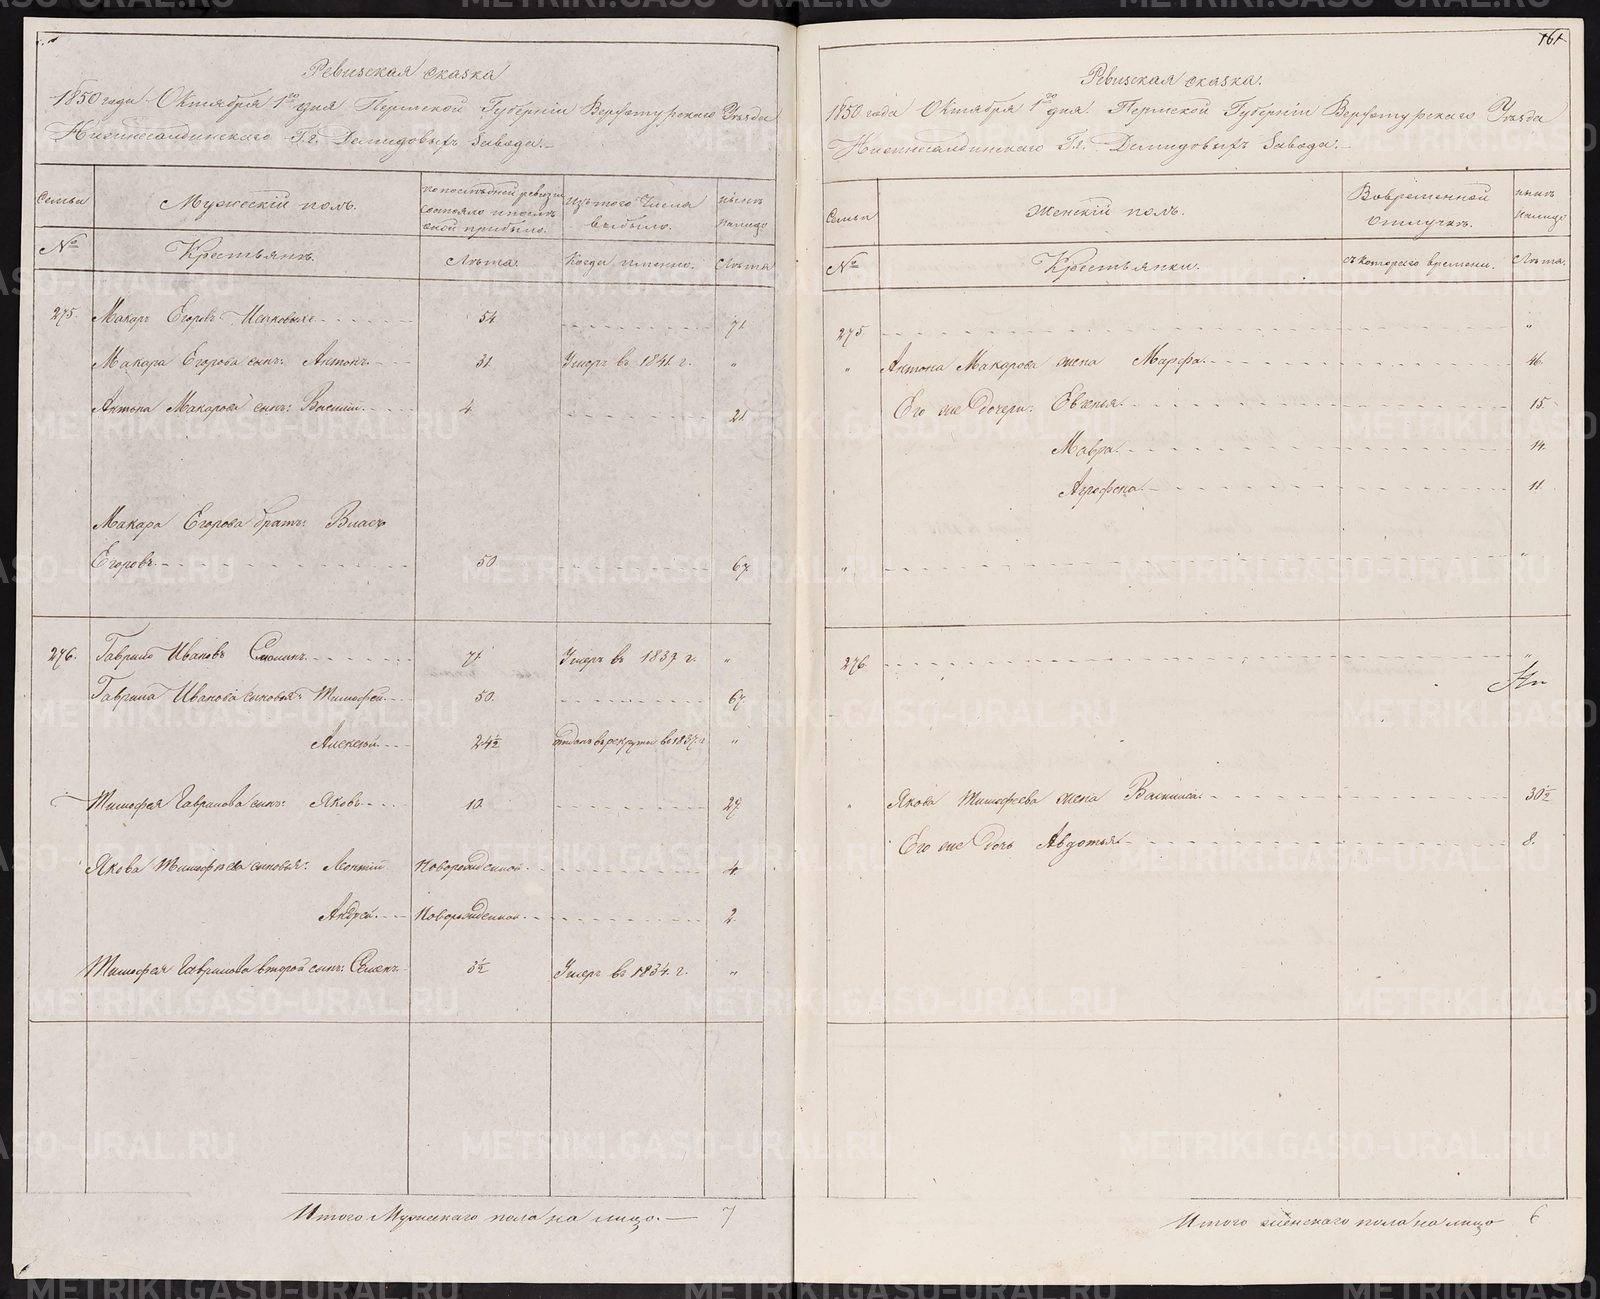 161
Ревизская сказка
1850 года Октября 1го дня Пермской Губерніи Верхотурскаго Уѣзда
Нижнесалдинскаго Г.г. Демидовыхъ Завода.
Семьи
Мужескій полъ.
по послѣдней ревизіи состояло и послѣ оной прибыло.
Изъ того числа выбыло.
нынѣ на лицо
№
Крестьянъ.
Лѣта.
Когда именно.
Лѣта
275. Макаръ Егоровъ Исаковыхъ 54 71
Макара Егорова сынъ: Антонъ 31 Умеръ въ 1841 г. "
Антона Макарова сынъ: Василій 4 21
Макара Егорова братъ: Власъ
Егоровъ 50 67
276. Гаврило Ивановъ 71 Умеръ въ 1837 г. "
Гаврила Иванова сыновья: Тимофей 50. 67
Алексѣй 24½ отданъ въ рекруты въ 1837 г. "
Тимофея Гаврилова сынъ: Яковъ 10 27
Якова Тимофеева сыновья: Леонтій Новорожденной 4
Андрей Новорожденной 2
Тимофея Гаврилова второй сынъ: Семенъ 3½ Умеръ въ 1834 г. "
Итого Мужескаго пола на лицо. 7
Ревизская сказка.
1850 года Октября 1го дня Пермской Губерніи Верхотурскаго Уѣзда
Нижнесалдинскаго Г.г. Демидовыхъ Завода.
Семьи
Женскій полъ.
Во временной отлучкѣ.
нынѣ на лицо
№
Крестьянки.
съ котораго времени.
Лѣта.
275 "
" Антона Макарова жена Марфа 46
Его же дочери: Евгенья 15
Мавра 14
Агрофена 11
" "
276 "
" Якова Тимофеева жена Василиса 30½
Его же дочь Авдотья 8.
Итого женскаго пола на лицо 6
METRIKI.GASO-URAL.RU